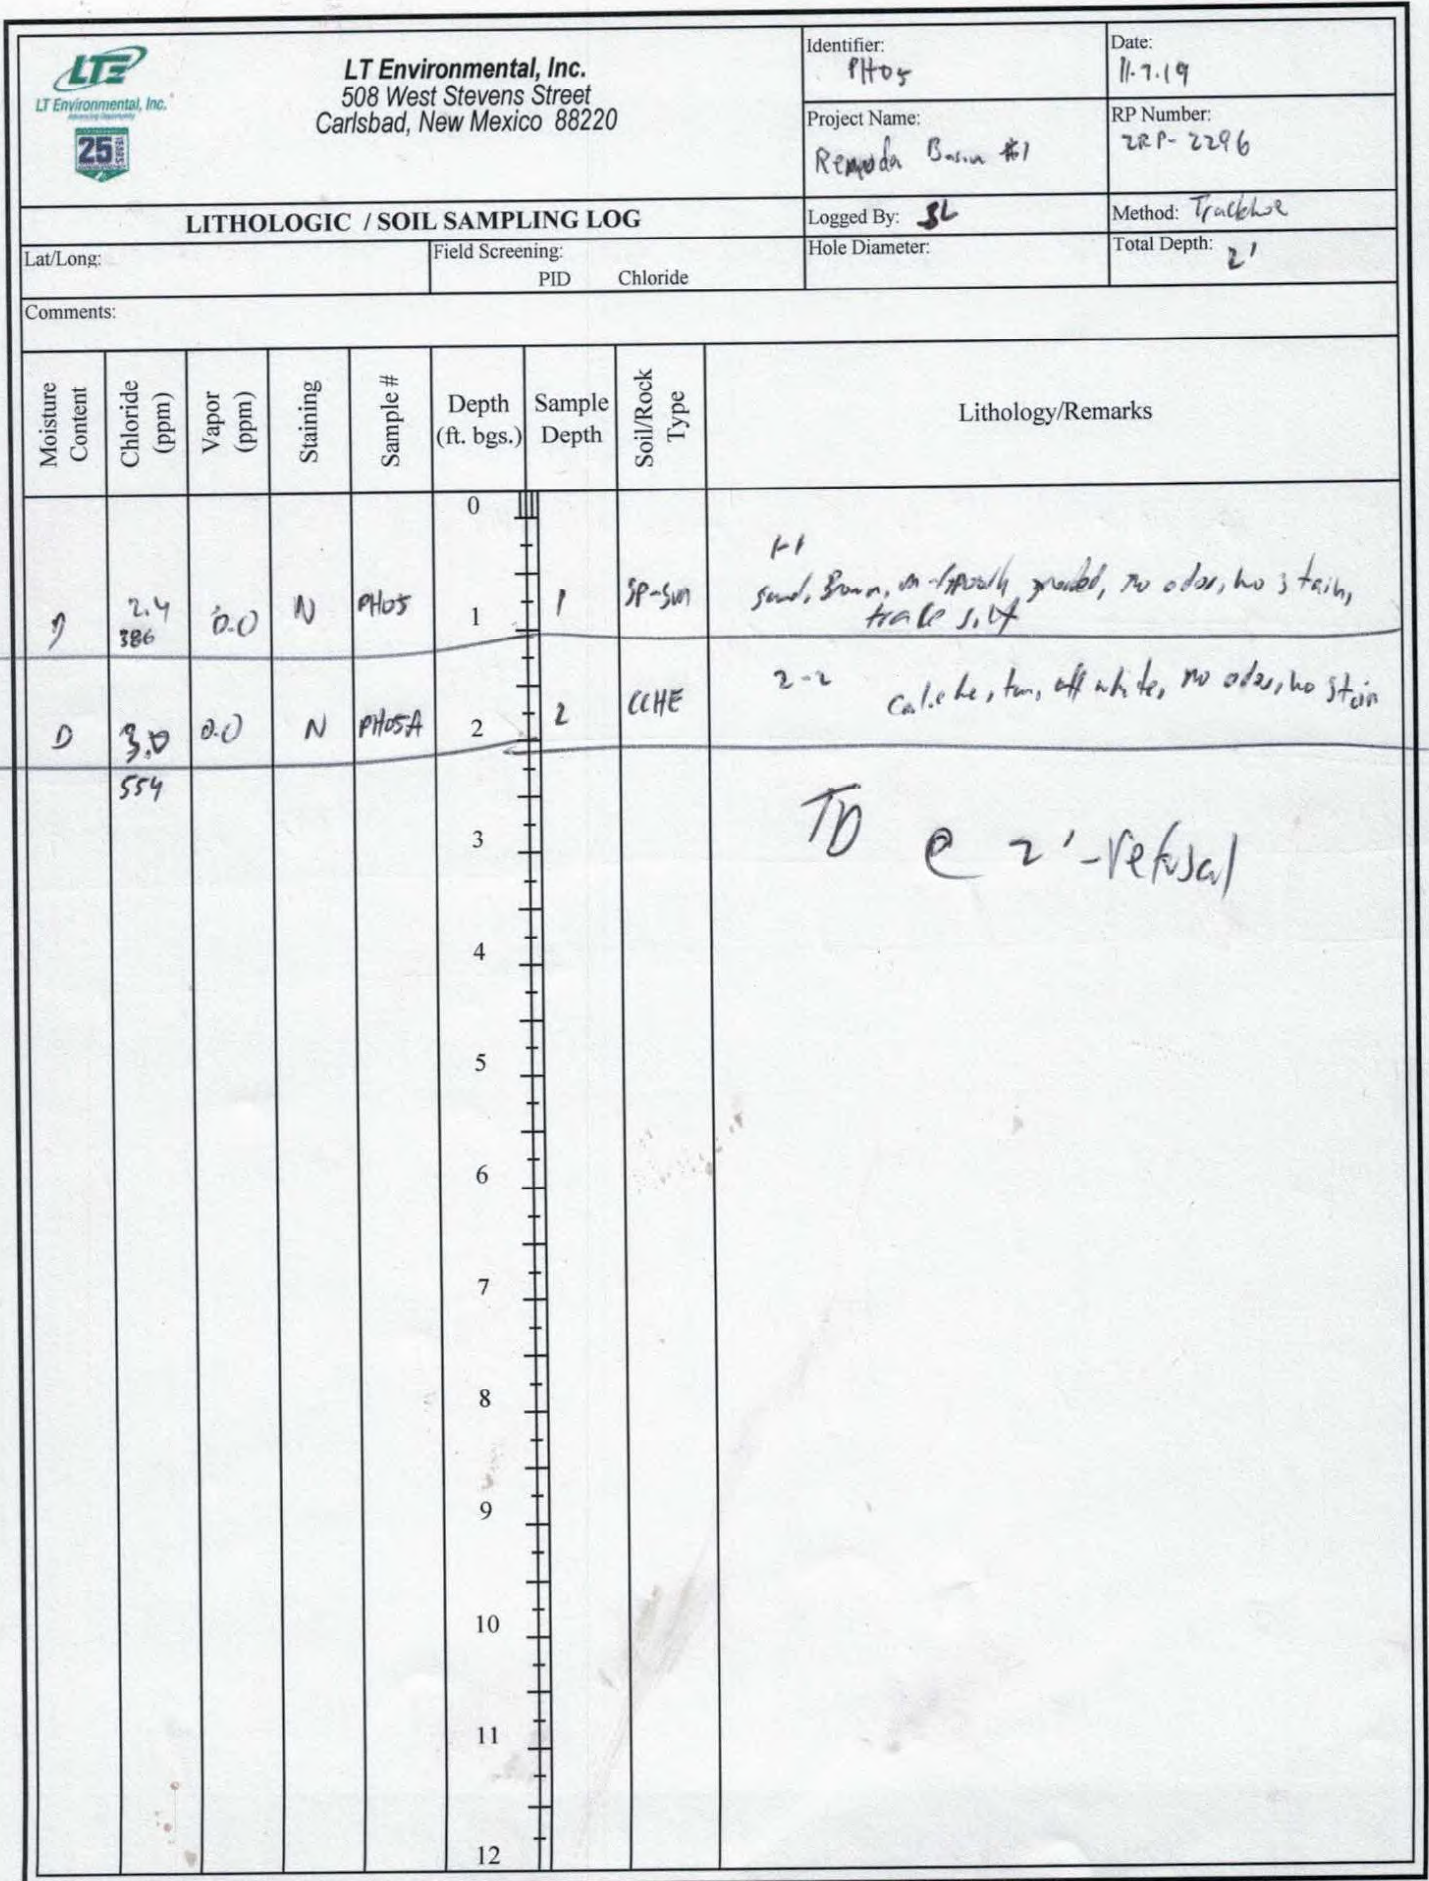 LTE
LT Environmental, Inc.
Advancing Opportunity
25 YEARS
LT Environmental, Inc.
508 West Stevens Street
Carlsbad, New Mexico 88220
Identifier:
PH05
Date:
11.7.19
Project Name:
Remuda Basin #1
RP Number:
2RP-2296
LITHOLOGIC / SOIL SAMPLING LOG
Logged By: SL
Method: Trackhoe
Lat/Long:
Field Screening:
PID Chloride
Hole Diameter:
Total Depth: 2'
Comments:
Moisture Content
Chloride (ppm)
Vapor (ppm)
Staining
Sample #
Depth (ft. bgs.)
Sample Depth
Soil/Rock Type
Lithology/Remarks
0
D 2.4 0.0 N PH05 1 1 SP-SM
386
1-1
sand, Brown, poorly graded, no odor, no stain,
trace silt
D 3.0 0.0 N PH05A 2 2 CCHE
554
2-2 caliche, tan, off white, no odor, no stain
TD @ 2'-refusal
3
4
5
6
7
8
9
10
11
12